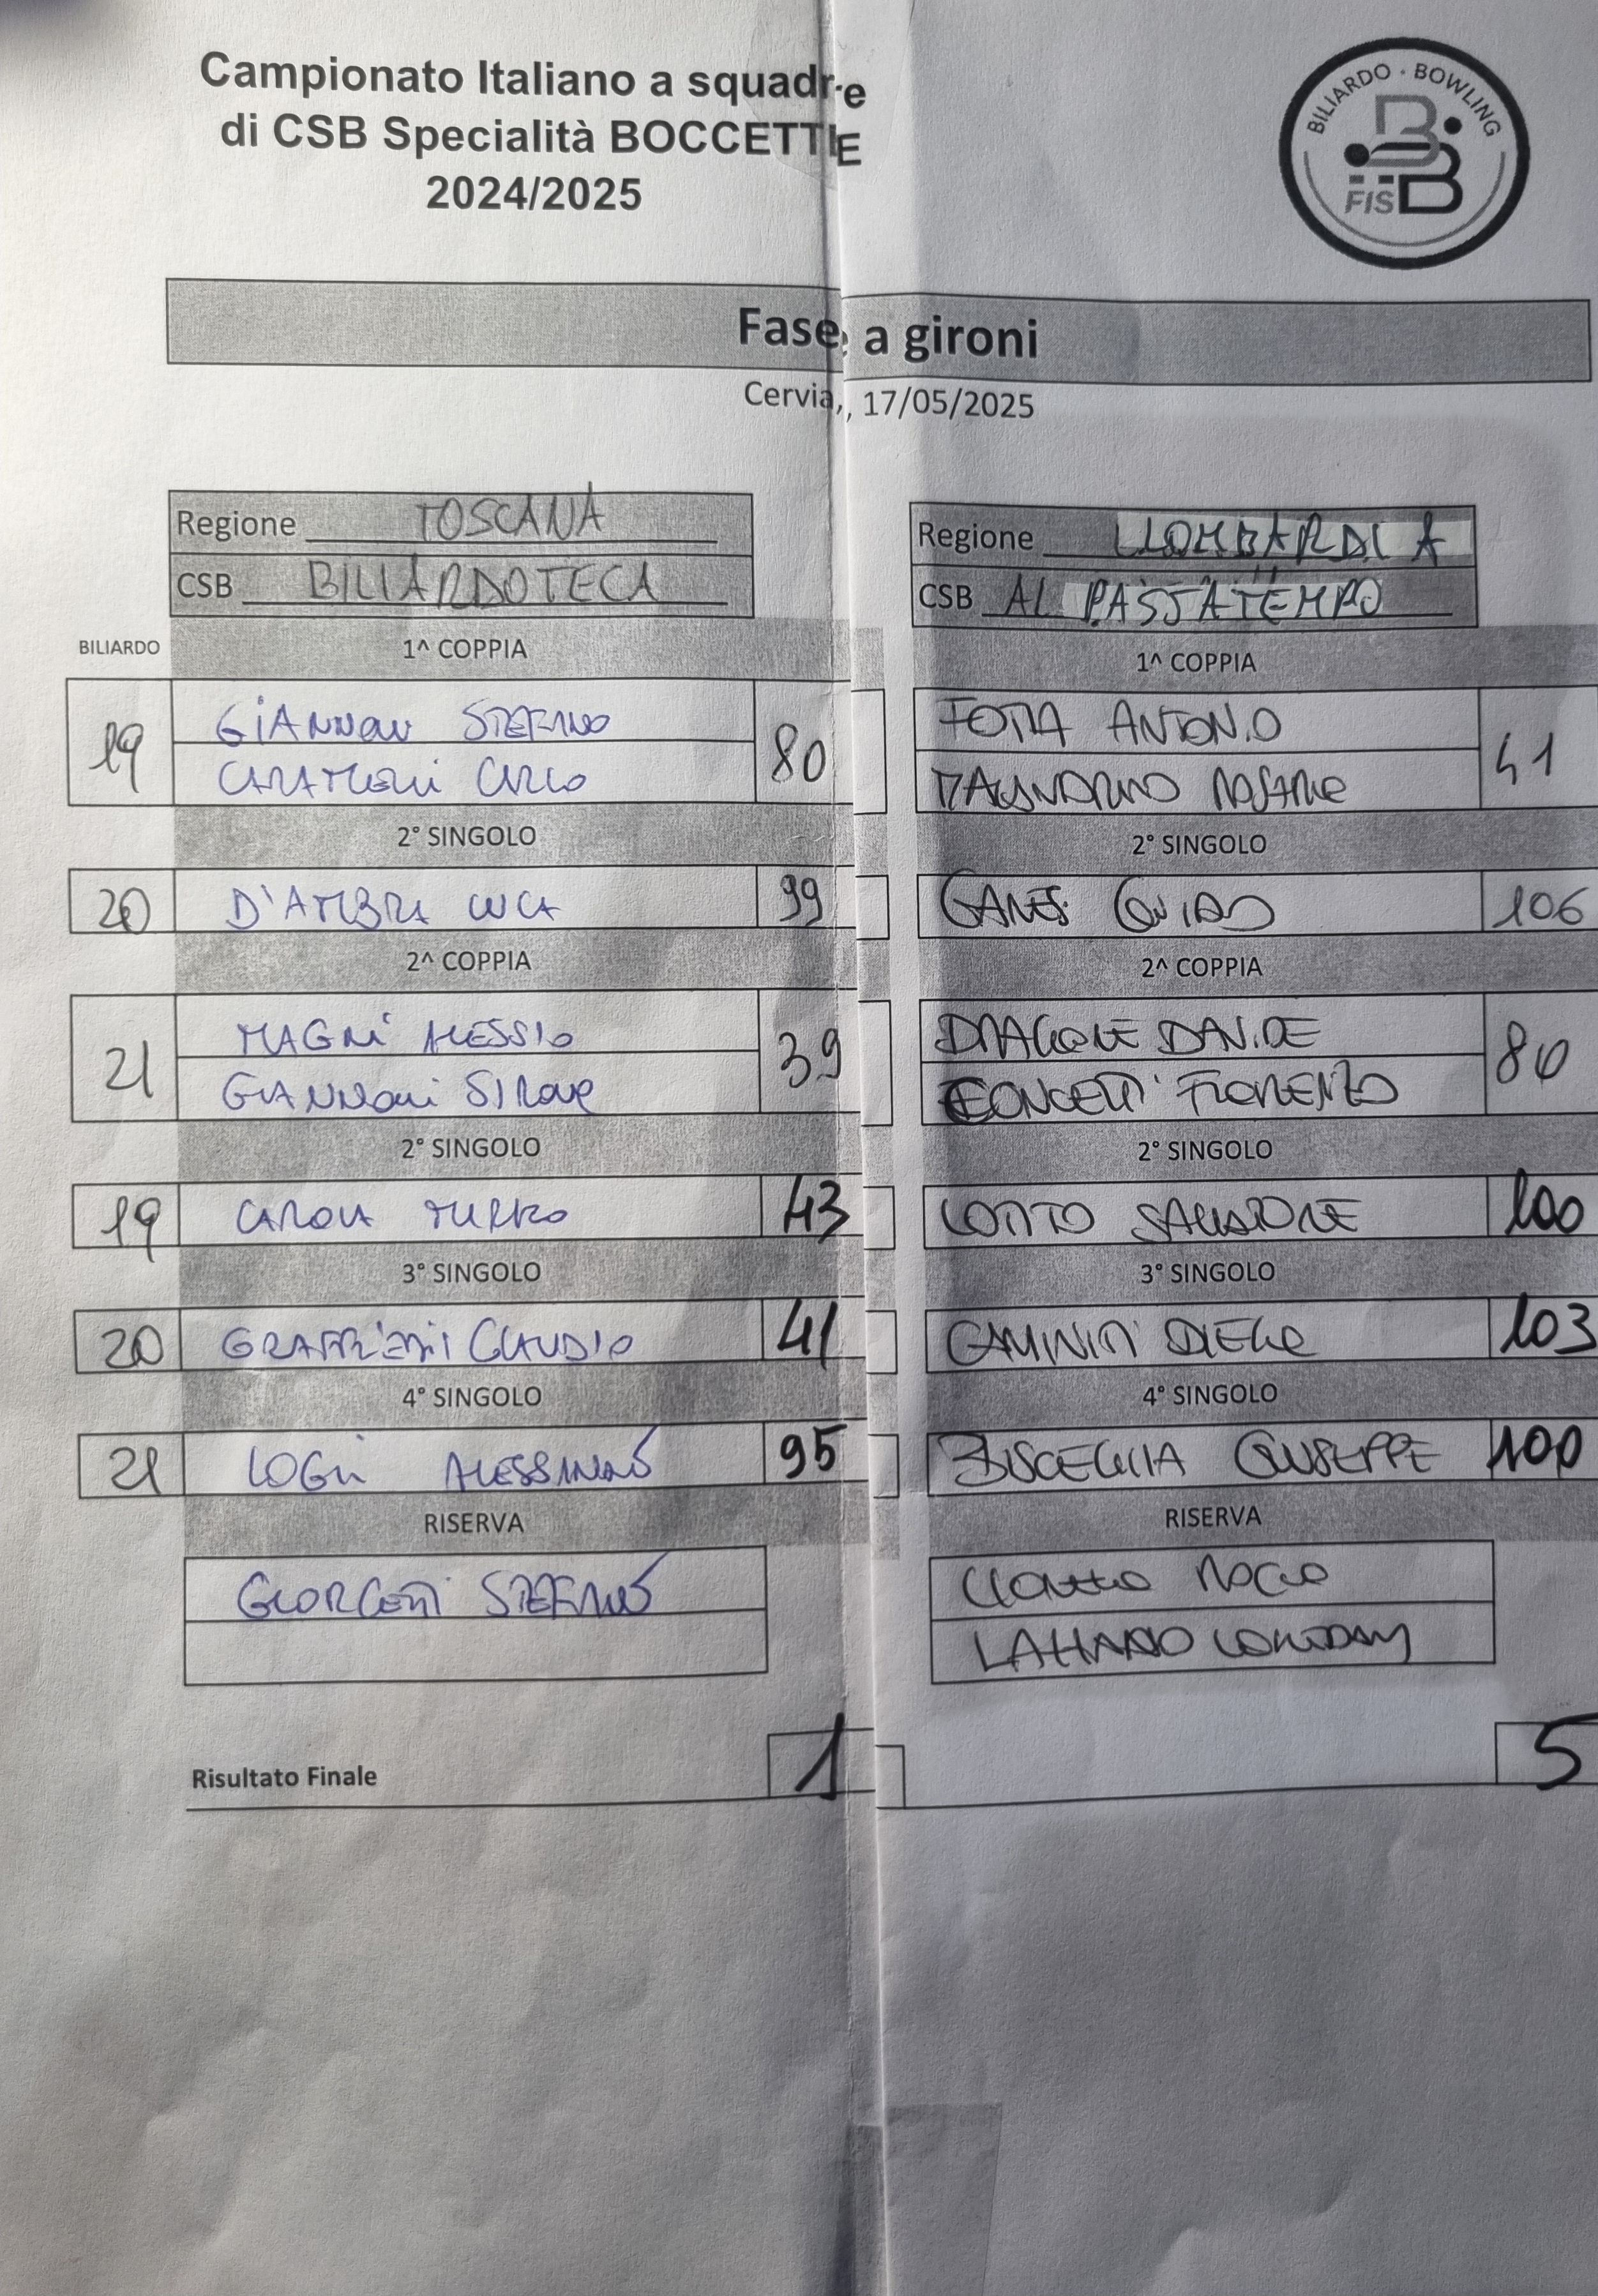 Campionato Italiano a squadre
di CSB Specialità BOCCETTE
2024/2025
BILIARDO · BOWLING
FISBB
Fase a gironi
Cervia, 17/05/2025
Regione TOSCANA
CSB BILIARDOTECA
Regione LOMBARDIA
CSB AL PASSATEMPO
BILIARDO 1^ COPPIA 1^ COPPIA
19 GIANNONI STEFANO 80 FOTIA ANTONIO 41
CARLO
2° SINGOLO 2° SINGOLO
20 D'AMBRA LUCA 99 GUIDO 106
2^ COPPIA 2^ COPPIA
21 MAGNI ALESSIO 39 DRAGONE DAVIDE 80
GIANNONI SIMONE CONCETTI FIORENZO
2° SINGOLO 2° SINGOLO
19 CAROLA MIRKO 43 LOTITO SALVATORE 100
3° SINGOLO 3° SINGOLO
20 CLAUDIO 41 CAMINITI DIEGO 103
4° SINGOLO 4° SINGOLO
21 LOGLI ALESSANDRO 95 BISCEGLIA GIUSEPPE 100
RISERVA RISERVA
GIORGETTI STEFANO ROCCO
Risultato Finale 1 5